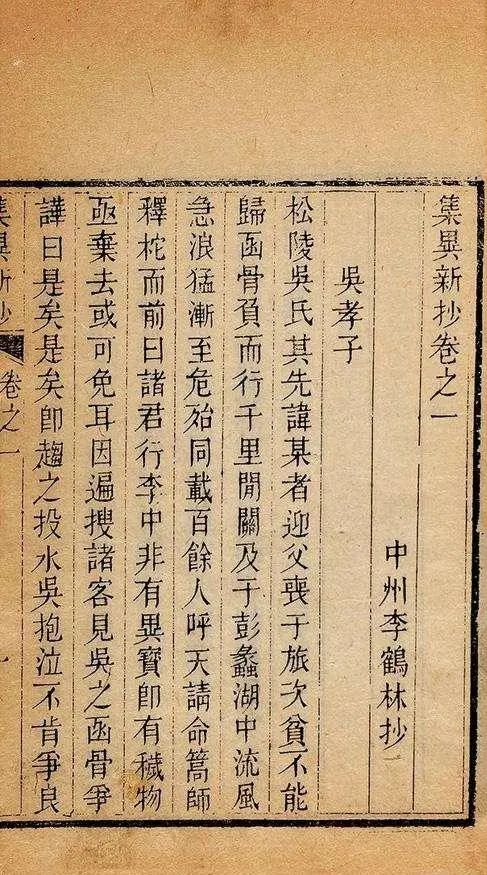 集異新抄卷之一
中州李鶴林抄
吳孝子
松陵吳氏其先諱某者迎父喪于旅次貧不能
歸函骨負而行千里閒關及于彭蠡湖中流風
急浪猛漸至危殆同載百餘人呼天請命篙師
釋柁而前曰諸君行李中非有異寶卽有穢物
亟棄去或可免耳因遍搜諸客見吳之函骨爭
譁曰是矣是矣卽趨之投水吳抱泣不肯爭良
集異新抄
卷之一